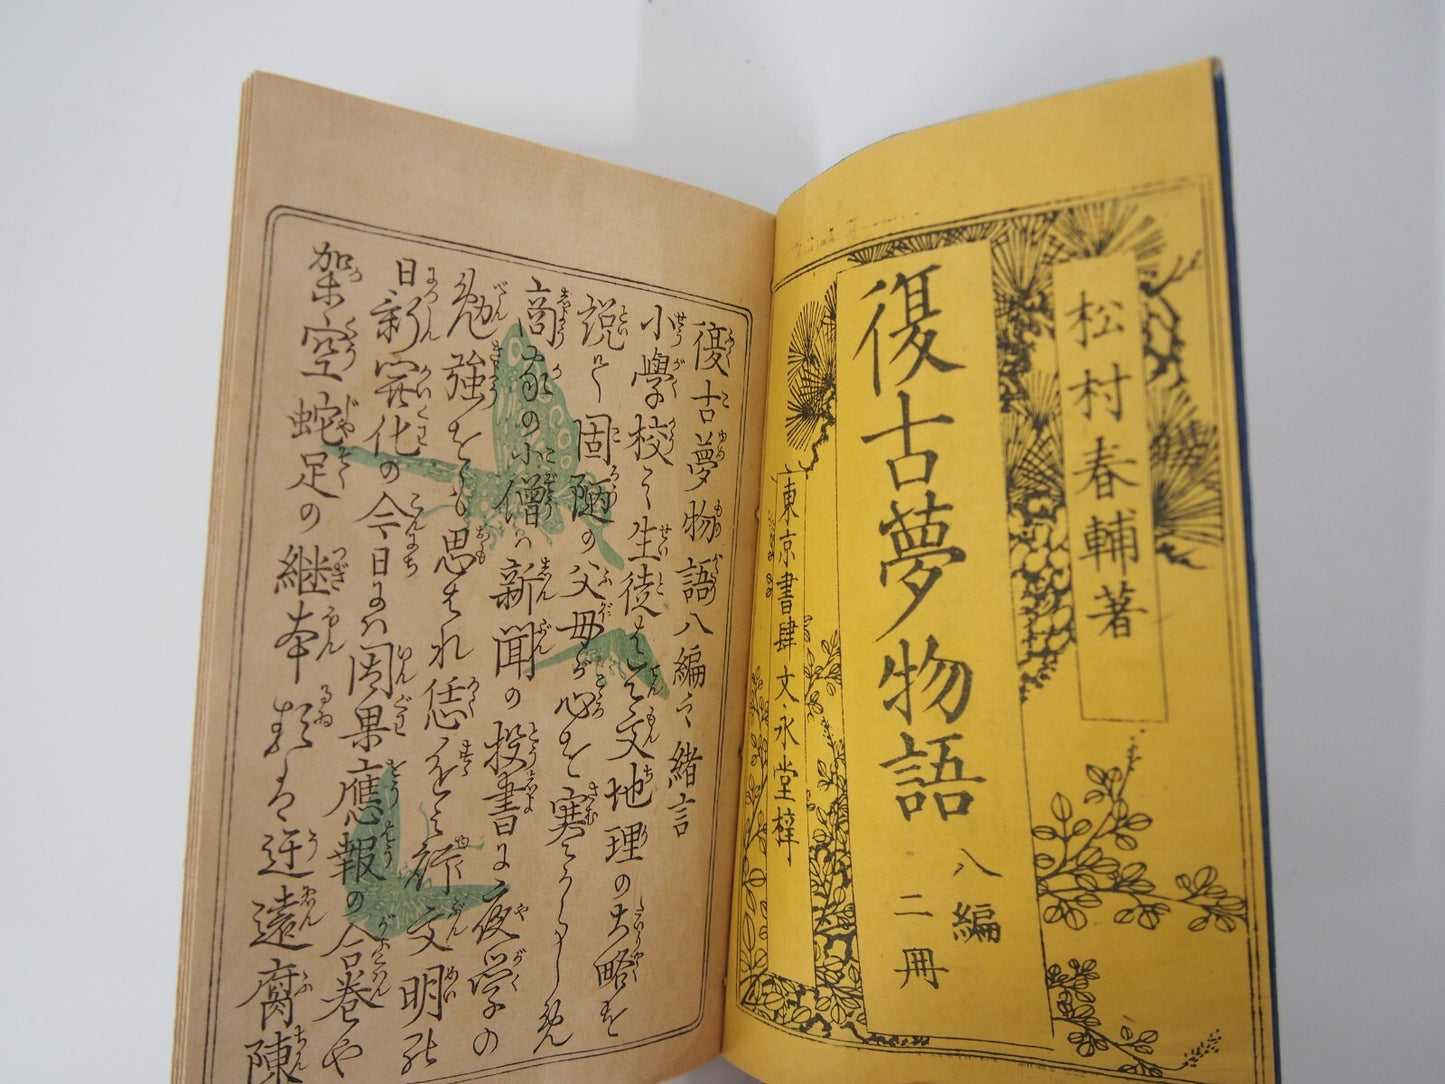 松村春輔著
復古夢物語 八編 二冊
東京書肆 文永堂梓
復古夢物語八編之緒言
小學校之生徒は天文地理の大略を
説て固陋の父母が心を寒からしめ
商家の小僧は新聞の投書に夜学の
勉強をも思はれ恁 文明
日新開化の今日には因果應報の合巻や
架空蛇足の継本類は迂遠腐陳